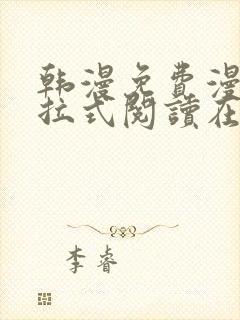 韩漫免费漫
拉式阅讀在
李睿